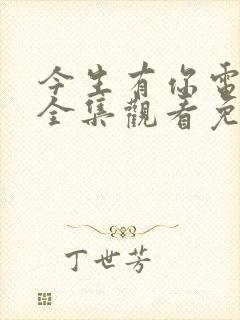 今生有你電
全集觀看免
丁世芳